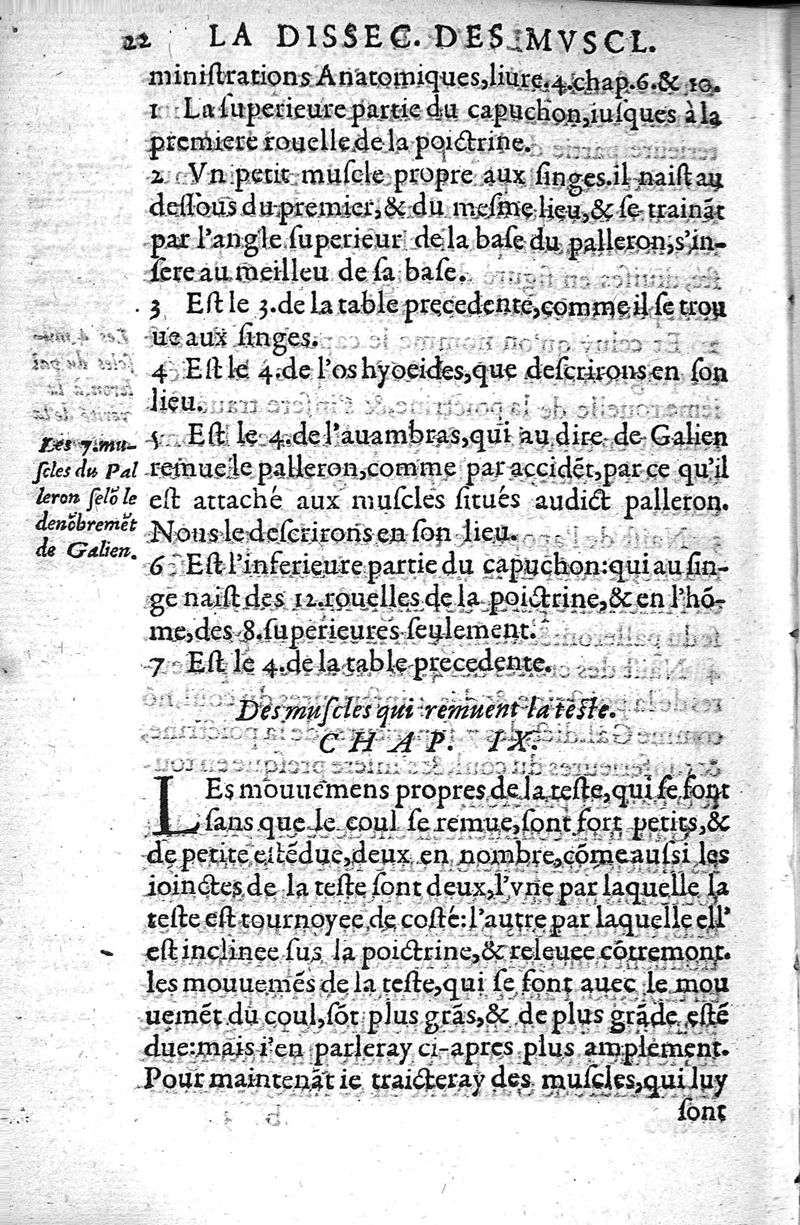 22 LA DISSEC. DES MVSCL.
miniſtrations Anatomiques,liure.4.chap.6.& 10.
1 La ſuperieure partie du capuchon,iuſques à la
premiere rouelle de la poictrine.
2 Vn petit muſcle propre aux ſinges.il naiſt au
deſſous du premier,& du meſme lieu,& ſe trainãt
par l'angle ſuperieur de la baſe du palleron,s'in-
ſere au meilleu de ſa baſe.
3 Eſt le 3.de la table precedente,comme il ſe trou
ue aux ſinges.
4 Eſt le 4.de l'os hyoeides,que deſcrirons en ſon
lieu.
5 Eſt le 4.de l'auambras,qui au dire de Galien
remue le palleron,comme par accidẽt,par ce qu'il
eſt attaché aux muſcles ſitués audict palleron.
Nous le deſcrirons en ſon lieu.
6 Eſt l'inferieure partie du capuchon:qui au ſin-
ge naiſt des 12.rouelles de la poictrine,& en l'hõ-
me,des 8.ſuperieures ſeulement.
7 Eſt le 4.de la table precedente.
Les 7.mu-
ſcles du Pal
leron ſelõ le
denõbremẽt
de Galien.
Des muſcles qui remuent la teſte.
CHAP. IX.
LEs mouuemens propres de la teſte,qui ſe font
ſans que le coul ſe remue,ſont fort petits,&
de petite eſtẽdue,deux en nombre,cõme auſsi les
ioinctes de la teſte ſont deux,l'vne par laquelle la
teſte eſt tournoyee de coſté:l'autre par laquelle ell'
eſt inclinee ſus la poictrine,& releuee cõtremont.
les mouuemẽs de la teſte,qui ſe font auec le mou
uemẽt du coul,ſõt plus grãs,& de plus grãde eſtẽ
due:mais i'en parleray ci-apres plus amplement.
Pour maintenãt ie traicteray des muſcles,qui luy
ſont